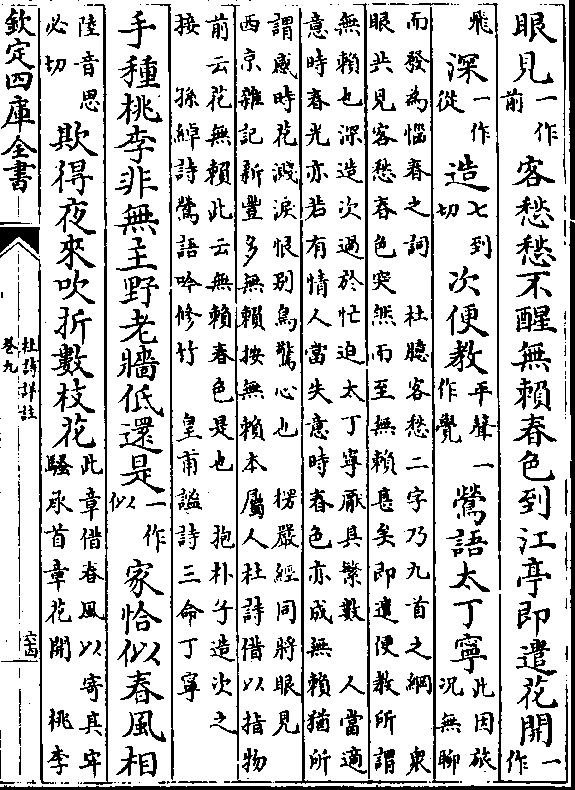 眼見一作前客愁愁不醒無賴春色到江亭即遣花開一作
飛深一作從造七到切次便教平聲一作覺鶯語太丁寧此因旅況無聊
而發為惱春之詞　杜臆客愁二字乃九首之綱　衆
眼共見客愁春色突然而至無賴甚矣即遣便教所謂
無賴也深造次過於忙迫太丁寧厭其繁數　人當適
意時春光亦若有情人當失意時春色亦成無賴猶所
謂感時花濺淚恨別鳥驚心也　楞嚴經同將眼見
西京雜記新豐多無賴按無賴本屬人杜詩借以指物
前云花無賴此云無賴春色是也　抱朴子造次之
接　孫綽詩鶯語吟修竹　皇甫謐詩三命丁寧
手種桃李非無主野老牆低還是一作似家恰似春風相
陸音思必切欺得夜來吹折數枝花此章借春風以寄其牢騷承首章花開　桃李
欽定四庫全書
杜詩詳註
卷九